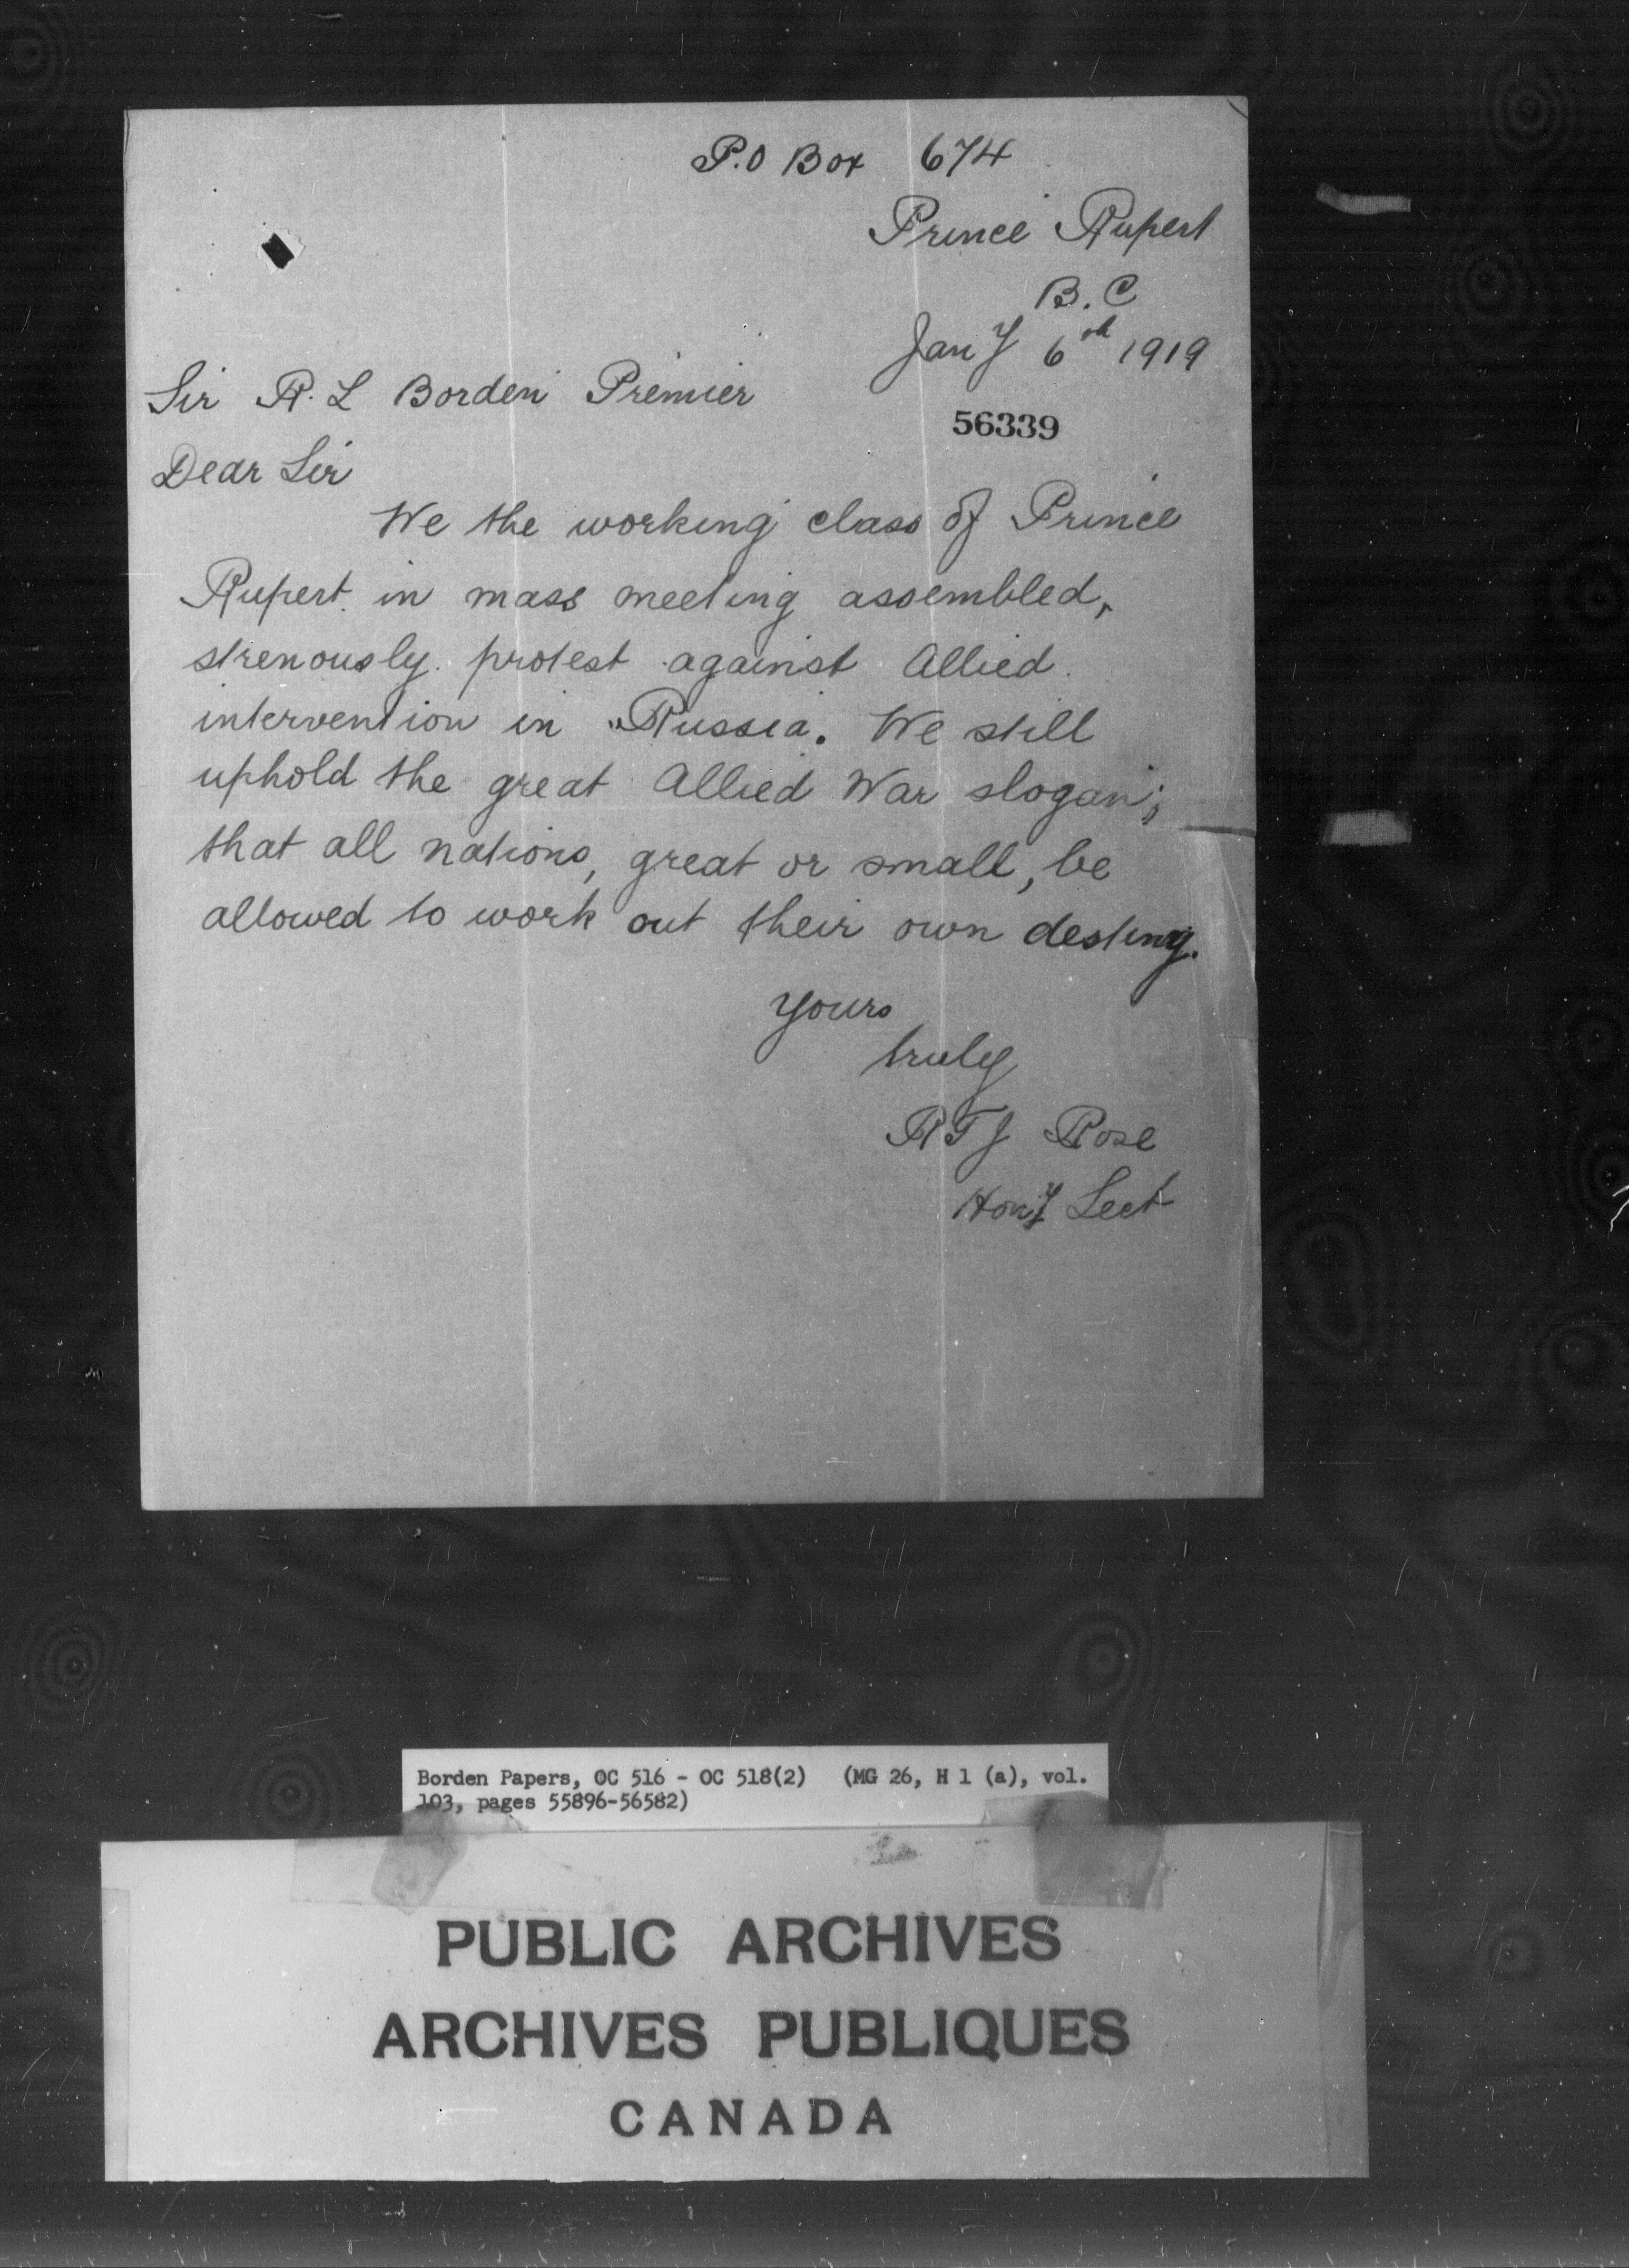 P.O Box 674
Prince Rupert
B.C
Jany 6th 1919
Sir R.L Borden Premier
56339
Dear Sir
We the working class of Prince
Rupert in mass meeting assembled,
strenously protest against Allied
intervention in Russia. We still
uphold the great Allied War slogan;
that all nations, great or small, be
allowed to work out their own destiny.
Yours
truly
R T J Rose
Hony Sect
Borden Papers, OC 516 - OC 518(2) (MG 26, H 1 (a), vol.
103, pages 55896-56582)
PUBLIC ARCHIVES
ARCHIVES PUBLIQUES
CANADA